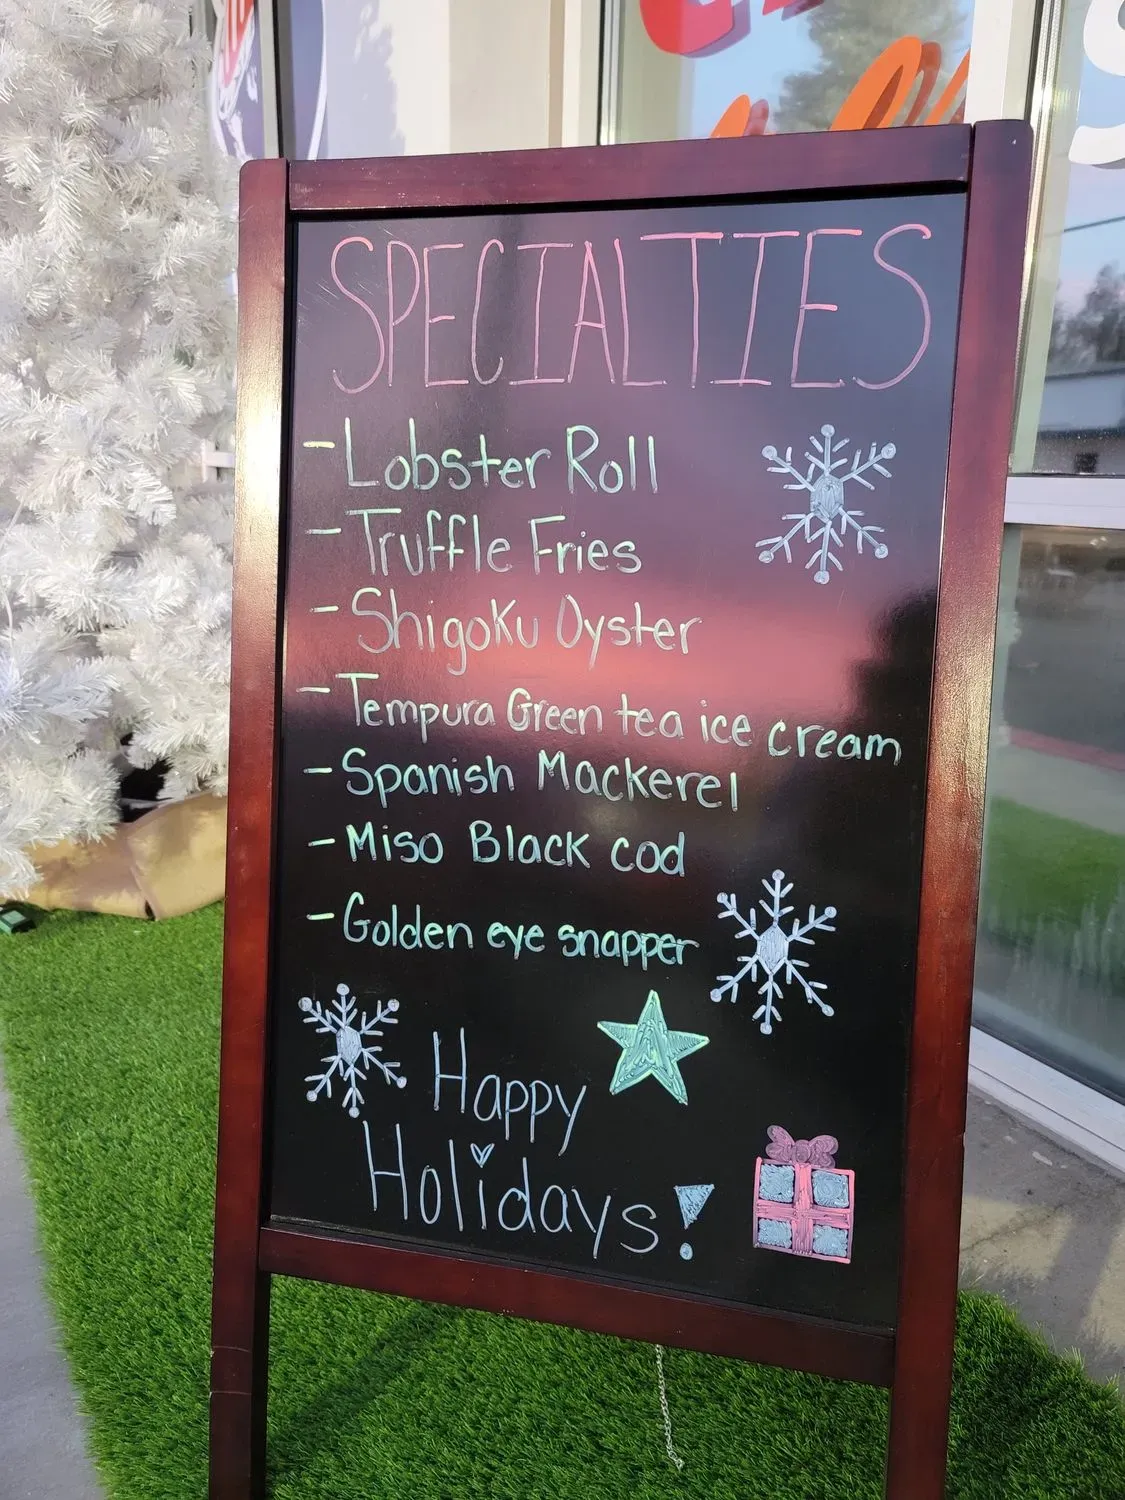 SPECIALTIES
- Lobster Roll
- Truffle Fries
- Shigoku Oyster
- Tempura Green tea ice cream
- Spanish Mackerel
- Miso Black cod
- Golden eye snapper
Happy
Holidays!